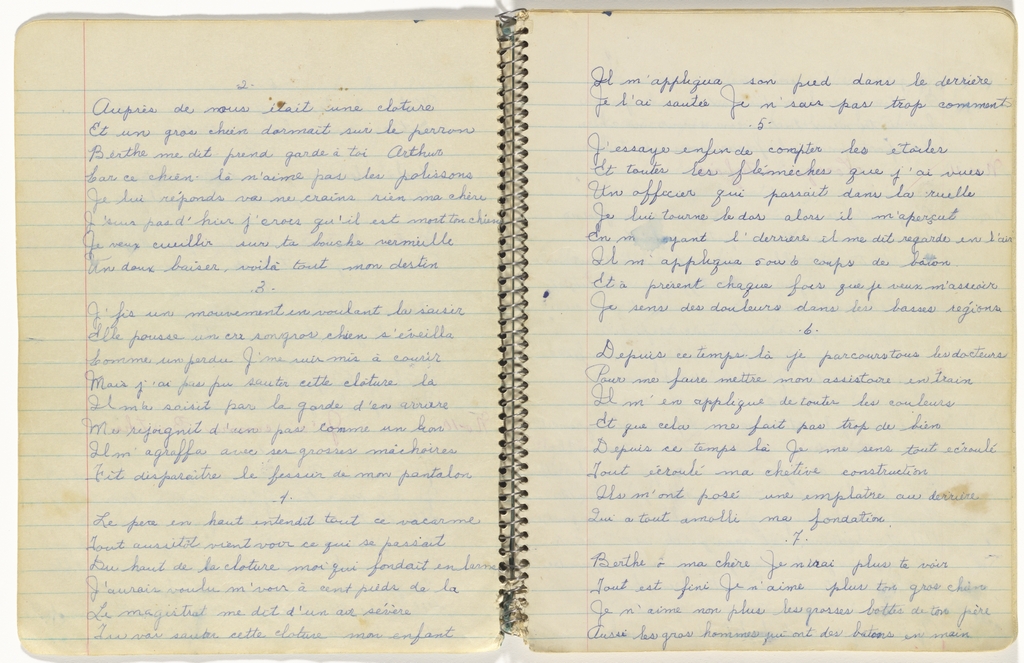 .2.
Auprès de nous était une cloture
Et un gros chien dormait sur le perron
Berthe me dit prend garde à toi Arthur
Car ce chien là n'aime pas les polissons
Je lui réponds va ne crains rien ma chère
J'suis pas d'hier j'crois qu'il est mort ton chien
Je veux cueillir sur ta bouche vermeille
Un doux baiser, voilà tout mon destin
.3.
J'fis un mouvement en voulant la saisir
Elle pousse un cri son gros chien s'éveilla
Comme un perdu J'me suis mis à courir
Mais j'ai pas pu sauter cette clôture la
Il me saisit par la garde d'en arrière
Me rejoignit d'un pas comme un lion
Il m'agraffa avec ses grosses mâchoires
Fit disparaitre le fessier de mon pantalon
Le père en haut entendit tout ce vacarme
Tout aussitôt vient voir ce qui se passait
Du haut de la cloture moi qui fondait en larme
J'aurais voulu m'voir à cent pieds de la
Le magistrat me dit d'un air sévère
Tu vas sauter cette cloture mon enfant
Il m'appliqua son pied dans le derrière
Je l'ai sautée Je n'sais pas trop comment
.5.
J'essaye enfin de compter les étoiles
Et toutes les flémèches que j'ai vues
Un officier qui passait dans la ruelle
Je lui tourne le dos alors il m'aperçut
En m oyant l'derrière il me dit regarde en l'air
Il m'appliqua 5 ou 6 coups de baton
Et à présent chaque fois que je veux m'asseoir
Je sens des douleurs dans les basses régions
.6.
Depuis ce temps là je parcours tous les docteurs
Pour me faire mettre mon assistoire en train
Il m'en applique de toutes les couleurs
Et que cela me fait pas trop de bien
Depuis ce temps là Je me sens tout écroulé
Tout écroulé ma chétive construction
Ils m'ont posé une emplatre au derrière
Qui a tout amolli ma fondation.
.7.
Berthe ô ma chère Je n'irai plus te voir
Tout est fini Je n'aime plus ton gros chien
Je n'aime non plus les grosses bottes de ton père
Aussi les gros hommes qui ont des batons en main